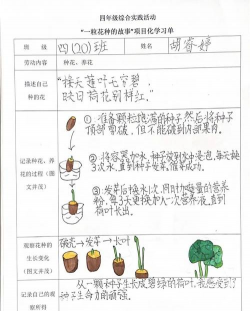 四年级综合实践活动
“一粒花种的故事”项目化学习单
班 级 四(20)班 姓名 胡睿婷
劳动内容 种花、养花
描述自己种的花
“接天莲叶无穷碧，
映日荷花别样红。”
记录种花、养花的过程（图文并茂）
① 准备颗粒饱满的种子,然后将种子
顶部剪破，但不能碰到内部果肉。
② 将容器加水,种子放到水中浸泡,每天换
3次水,直到种子发芽,催芽成功。
③ 发芽后换水,同时加适量的营养
粉,每3天更换加入一次营养液,直到
荷叶长出。
观察花种的生长变化（图文并茂）
破壳→发芽→长叶
记录自己的观察所得
从一颗种子生长成碧绿的荷叶,我感受到了
种子生命力的顽强。